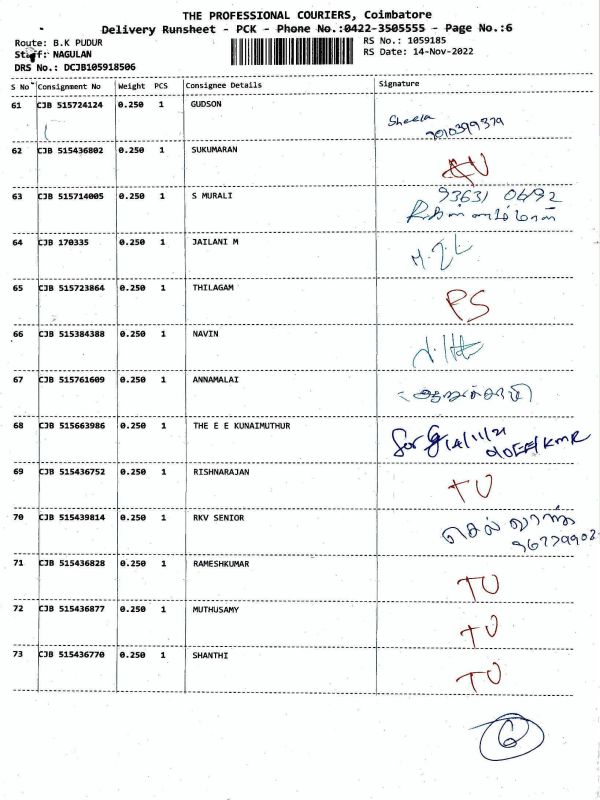 THE PROFESSIONAL COURIERS, Coimbatore
Delivery Runsheet - PCK - Phone No.:0422-3505555 - Page No.:6
Route: B.K PUDUR RS No.: 1059185
Staff: NAGULAN RS Date: 14-Nov-2022
DRS No.: DCJB105918506
S No Consignment No Weight PCS Consignee Details Signature
61 CJB 515724124 0.250 1 GUDSON
Sheela
7010399379
62 CJB 515436802 0.250 1 SUKUMARAN
63 CJB 515714005 0.250 1 S MURALI
64 CJB 170335 0.250 1 JAILANI M
65 CJB 515723864 0.250 1 THILAGAM
PS
66 CJB 515384388 0.250 1 NAVIN
67 CJB 515761609 0.250 1 ANNAMALAI
68 CJB 515663986 0.250 1 THE E E KUNAIMUTHUR
69 CJB 515436752 0.250 1 RISHNARAJAN
TU
70 CJB 515439814 0.250 1 RKV SENIOR
71 CJB 515436828 0.250 1 RAMESHKUMAR
TU
72 CJB 515436877 0.250 1 MUTHUSAMY
TU
73 CJB 515436770 0.250 1 SHANTHI
TU
6